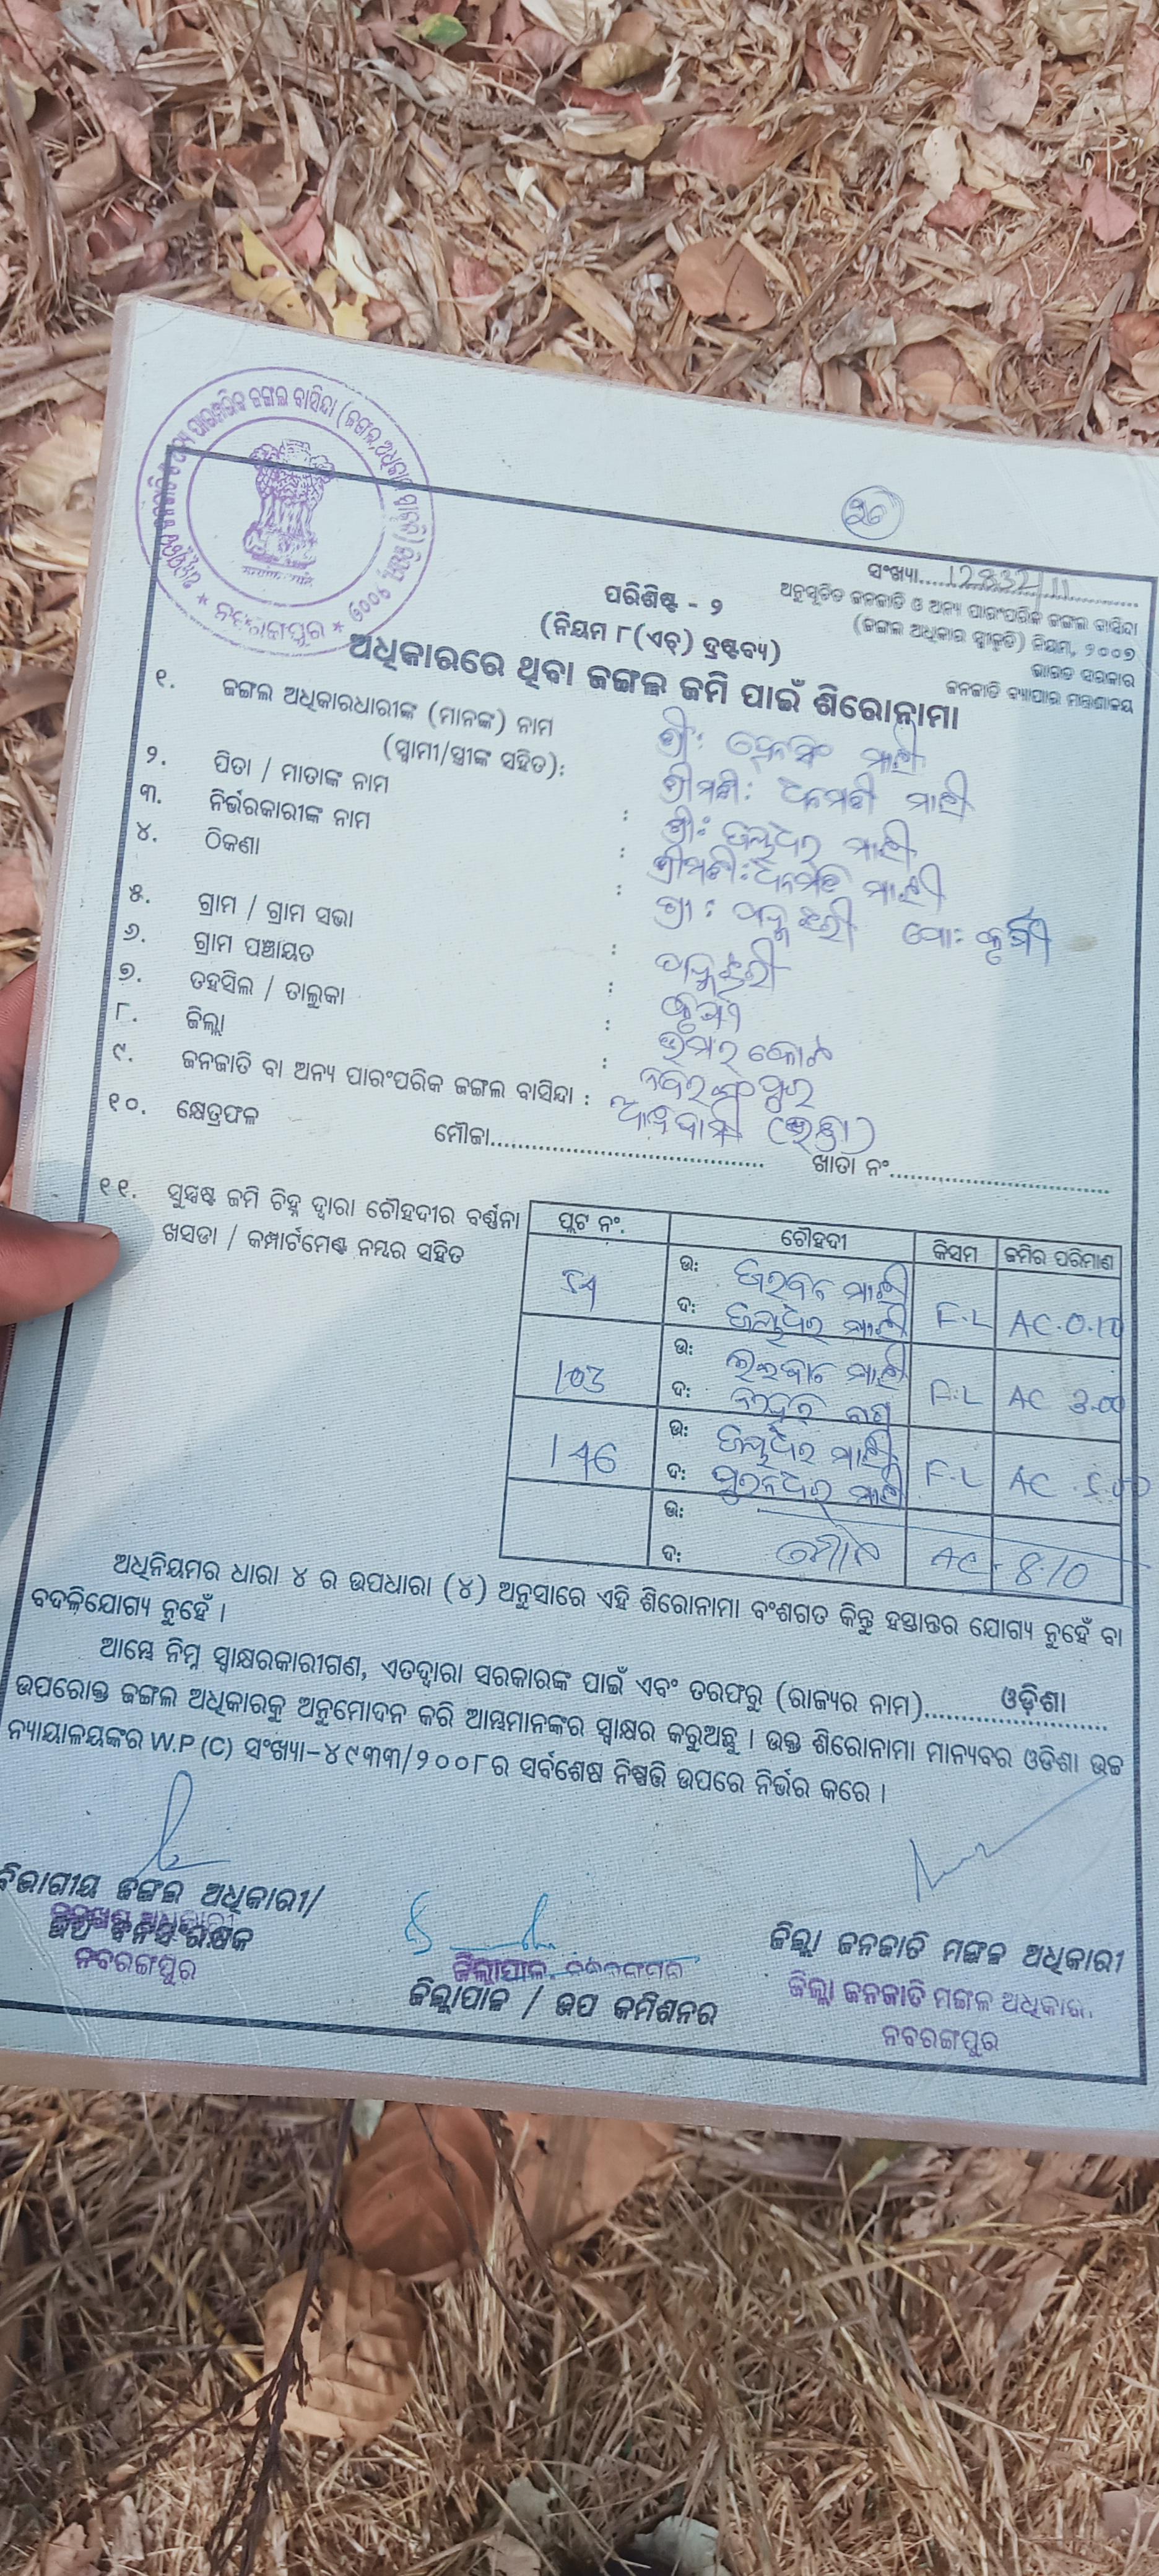 ସଂଖ୍ୟା.....12832/11
ଅନୁସୂଚିତ ଜନଜାତି ଓ ଅନ୍ୟ ପାରଂପରିକ ଜଙ୍ଗଲ ବାସିନ୍ଦା
(ଜଙ୍ଗଲ ଅଧିକାର ସ୍ୱୀକୃତି) ନିୟମ, ୨୦୦୭
ଭାରତ ସରକାର
ଜନଜାତି ବ୍ୟାପାର ମନ୍ତ୍ରଣାଳୟ
ପରିଶିଷ୍ଟ - ୨
(ନିୟମ ୮(ଏଚ୍) ଦ୍ରଷ୍ଟବ୍ୟ)
ଅଧିକାରରେ ଥିବା ଜଙ୍ଗଲ ଜମି ପାଇଁ ଶିରୋନାମା
୧. ଜଙ୍ଗଲ ଅଧିକାରଧାରୀଙ୍କ (ମାନଙ୍କ) ନାମ ଶ୍ରୀ: ମାଝୀ
(ସ୍ୱାମୀ/ସ୍ତ୍ରୀଙ୍କ ସହିତ): ଶ୍ରୀମତୀ: ଧନମତୀ ମାଝୀ
୨. ପିତା / ମାତାଙ୍କ ନାମ : ଶ୍ରୀ: ମାଝୀ
୩. ନିର୍ଭରକାରୀଙ୍କ ନାମ : ଶ୍ରୀମତୀ: ଧନମତି ମାଝୀ
୪. ଠିକଣା : ଗ୍ରା: ପୋ:
୫. ଗ୍ରାମ / ଗ୍ରାମ ସଭା :
୬. ଗ୍ରାମ ପଞ୍ଚାୟତ :
୭. ତହସିଲ / ତାଲୁକା : ଉମରକୋଟ
୮. ଜିଲ୍ଲା : ନବରଙ୍ଗପୁର
୯. ଜନଜାତି ବା ଅନ୍ୟ ପାରଂପରିକ ଜଙ୍ଗଲ ବାସିନ୍ଦା : ଆଦିବାସୀ
୧୦. କ୍ଷେତ୍ରଫଳ ମୌଜା..... ଖାତା ନଂ.....
୧୧. ସୁସ୍ପଷ୍ଟ ଜମି ଚିହ୍ନ ଦ୍ୱାରା ଚୌହଦୀର ବର୍ଣ୍ଣନା
ଖସଡା / କମ୍ପାର୍ଟମେଣ୍ଟ ନମ୍ବର ସହିତ
ପ୍ଲଟ ନଂ. ଚୌହଦୀ କିସମ ଜମିର ପରିମାଣ
ଉ: ମାଝୀ
ଦ: ମାଝୀ F.L AC.0.10
103 ଉ: ମାଝୀ
ଦ: F.L AC 3.00
ଉ: ମାଝୀ
ଦ: ମାଝୀ F.L AC
ଉ:
ଦ: ମୋଟ AC. 8.10
ଅଧିନିୟମର ଧାରା ୪ ର ଉପଧାରା (୪) ଅନୁସାରେ ଏହି ଶିରୋନାମା ବଂଶଗତ କିନ୍ତୁ ହସ୍ତାନ୍ତର ଯୋଗ୍ୟ ନୁହେଁ ବା
ବଦଳିଯୋଗ୍ୟ ନୁହେଁ ।
ଆମ୍ଭେ ନିମ୍ନ ସ୍ୱାକ୍ଷରକାରୀଗଣ, ଏତଦ୍ୱାରା ସରକାରଙ୍କ ପାଇଁ ଏବଂ ତରଫରୁ (ରାଜ୍ୟର ନାମ).....ଓଡ଼ିଶା
ଉପରୋକ୍ତ ଜଙ୍ଗଲ ଅଧିକାରକୁ ଅନୁମୋଦନ କରି ଆମ୍ଭମାନଙ୍କର ସ୍ୱାକ୍ଷର କରୁଅଛୁ । ଉକ୍ତ ଶିରୋନାମା ମାନ୍ୟବର ଓଡିଶା ଉଚ୍ଚ
ନ୍ୟାୟାଳୟଙ୍କର W.P (C) ସଂଖ୍ୟା-୪୯୩୩/୨୦୦୮ର ସର୍ବଶେଷ ନିଷ୍ପତ୍ତି ଉପରେ ନିର୍ଭର କରେ ।
ବିଭାଗୀୟ ଜଙ୍ଗଲ ଅଧିକାରୀ/
ଉପ ବନସଂରକ୍ଷକ
ନବରଙ୍ଗପୁର
ଜିଲ୍ଲାପାଳ, ନବରଙ୍ଗପୁର
ଜିଲ୍ଲାପାଳ / ଉପ କମିଶନର
ଜିଲ୍ଲା ଜନଜାତି ମଙ୍ଗଳ ଅଧିକାରୀ
ଜିଲ୍ଲା ଜନଜାତି ମଙ୍ଗଳ ଅଧିକାରୀ
ନବରଙ୍ଗପୁର